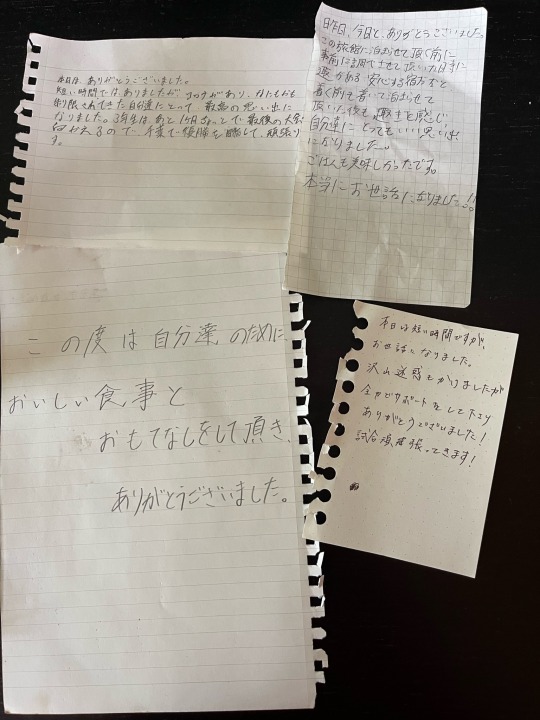 本日は、ありがとうございました。
短い時間では ありましたが
最高の思い出
になりました。3年生は、あと1か月ちょっとで 最後の大会
優勝を 頑張りま
す。
昨日、今日と、ありがとうございました。
この旅館に泊まらせて頂く前に
事前に調べさせて頂いた時に
趣がある 安心する宿だと
書く前に着いて泊まらせて
頂いた後も 趣きを感じ
自分達にとってもいい思い出
になりました。
ごはんも美味しかったです。
本当にお世話になりました!!
この度は自分達のために
おいしい食事と
おもてなしをして頂き、
ありがとうございました。
本日は短い時間ですが、
お世話になりました。
沢山迷惑をかけましたが
全力でサポートをして下さり
ありがとうございました!
試合頑張ってきます!